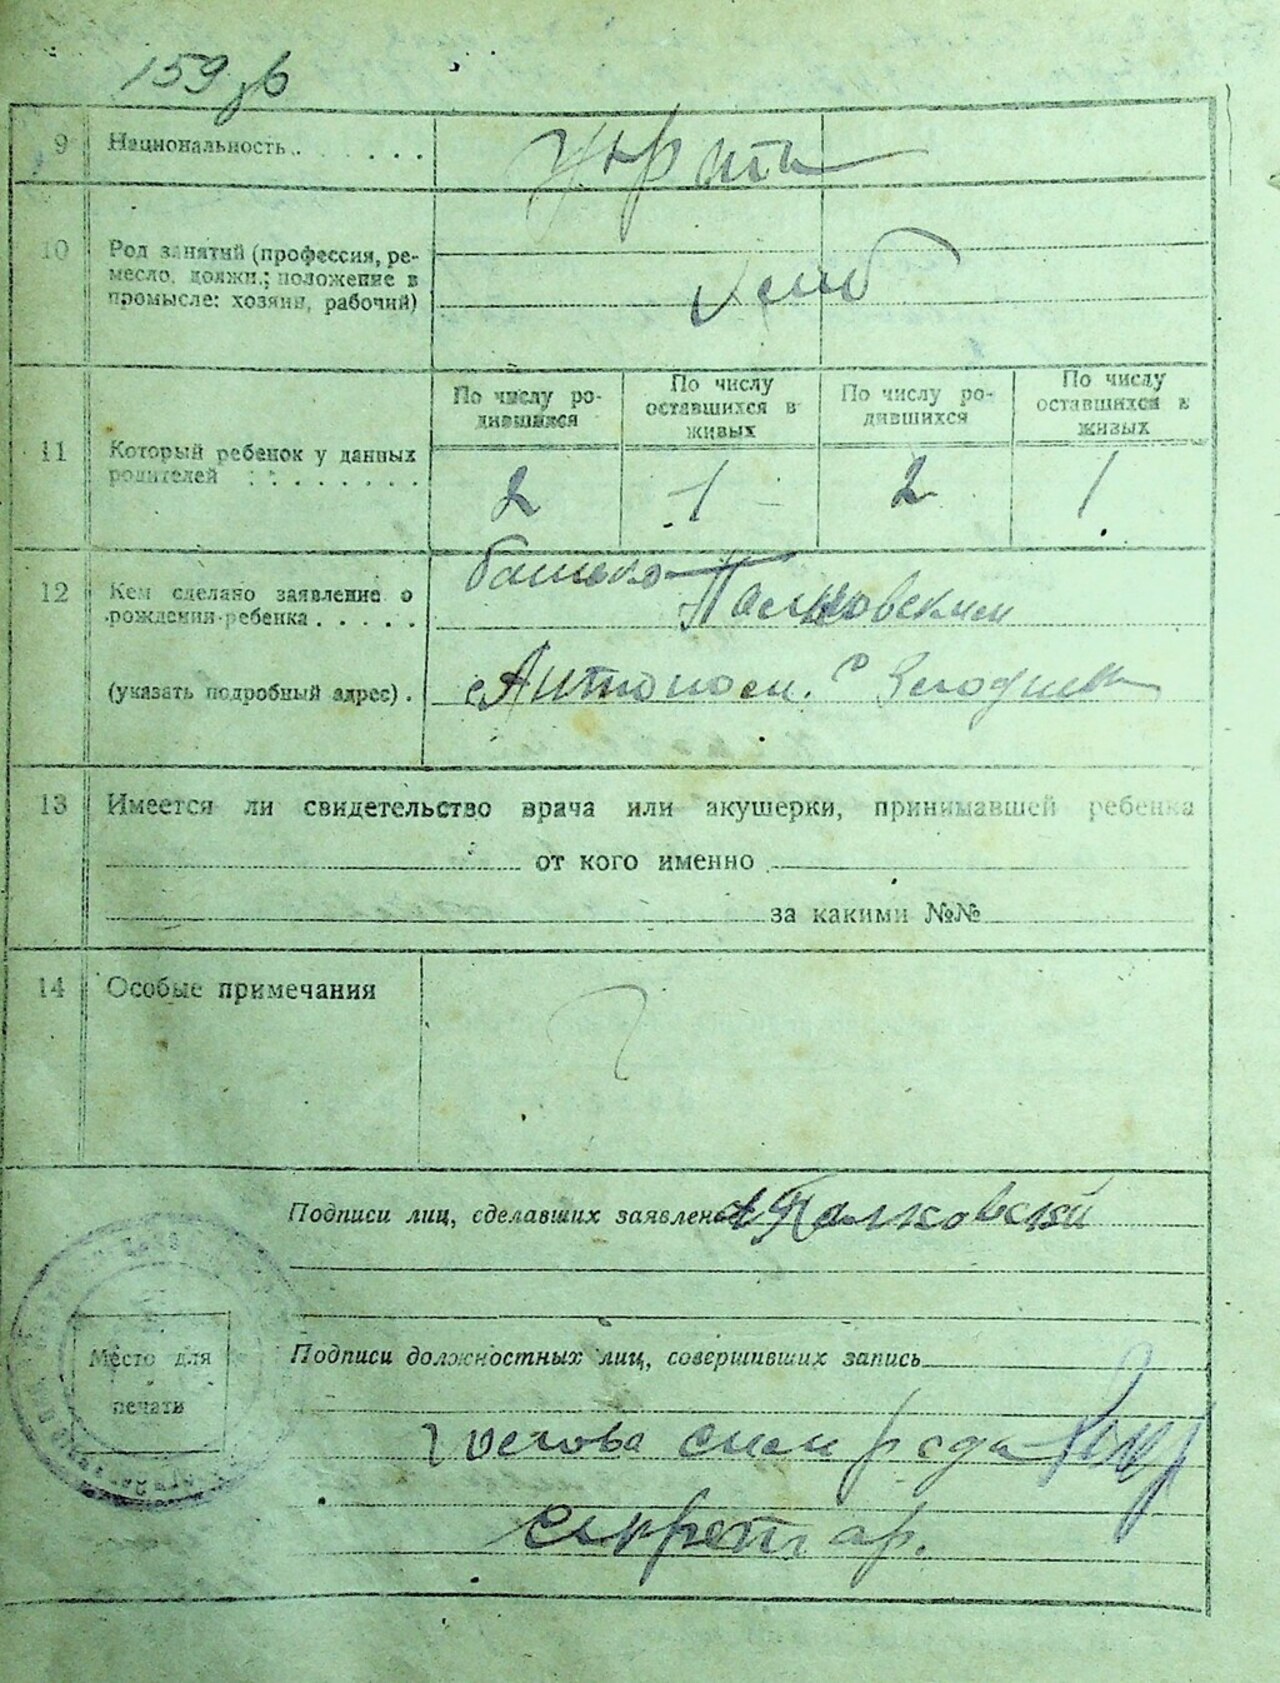 159 зв
9 Национальность . . . . . .
10 Род занятий (профессия, ре-
месло, должн.; положение в
промысле: хозяин, рабочий)
11 Который ребенок у данных
родителей . . . . . . . .
По числу ро-
дившихся
По числу
оставшихся в
живых
По числу ро-
дившихся
По числу
оставшихся в
живых
2 1 2 1
12 Кем сделано заявление о
рождении ребенка . . . . .
(указать подробный адрес) .
батько
Палковским
Антоном. с
13 Имеется ли свидетельство врача или акушерки, принимавшей ребенка
от кого именно
за какими №№
14 Особые примечания
Подписи лиц, сделавших заявлен А Палковский
Подписи должностных лиц, совершивших запись
Место для
печати
Голова сильради
секретар.